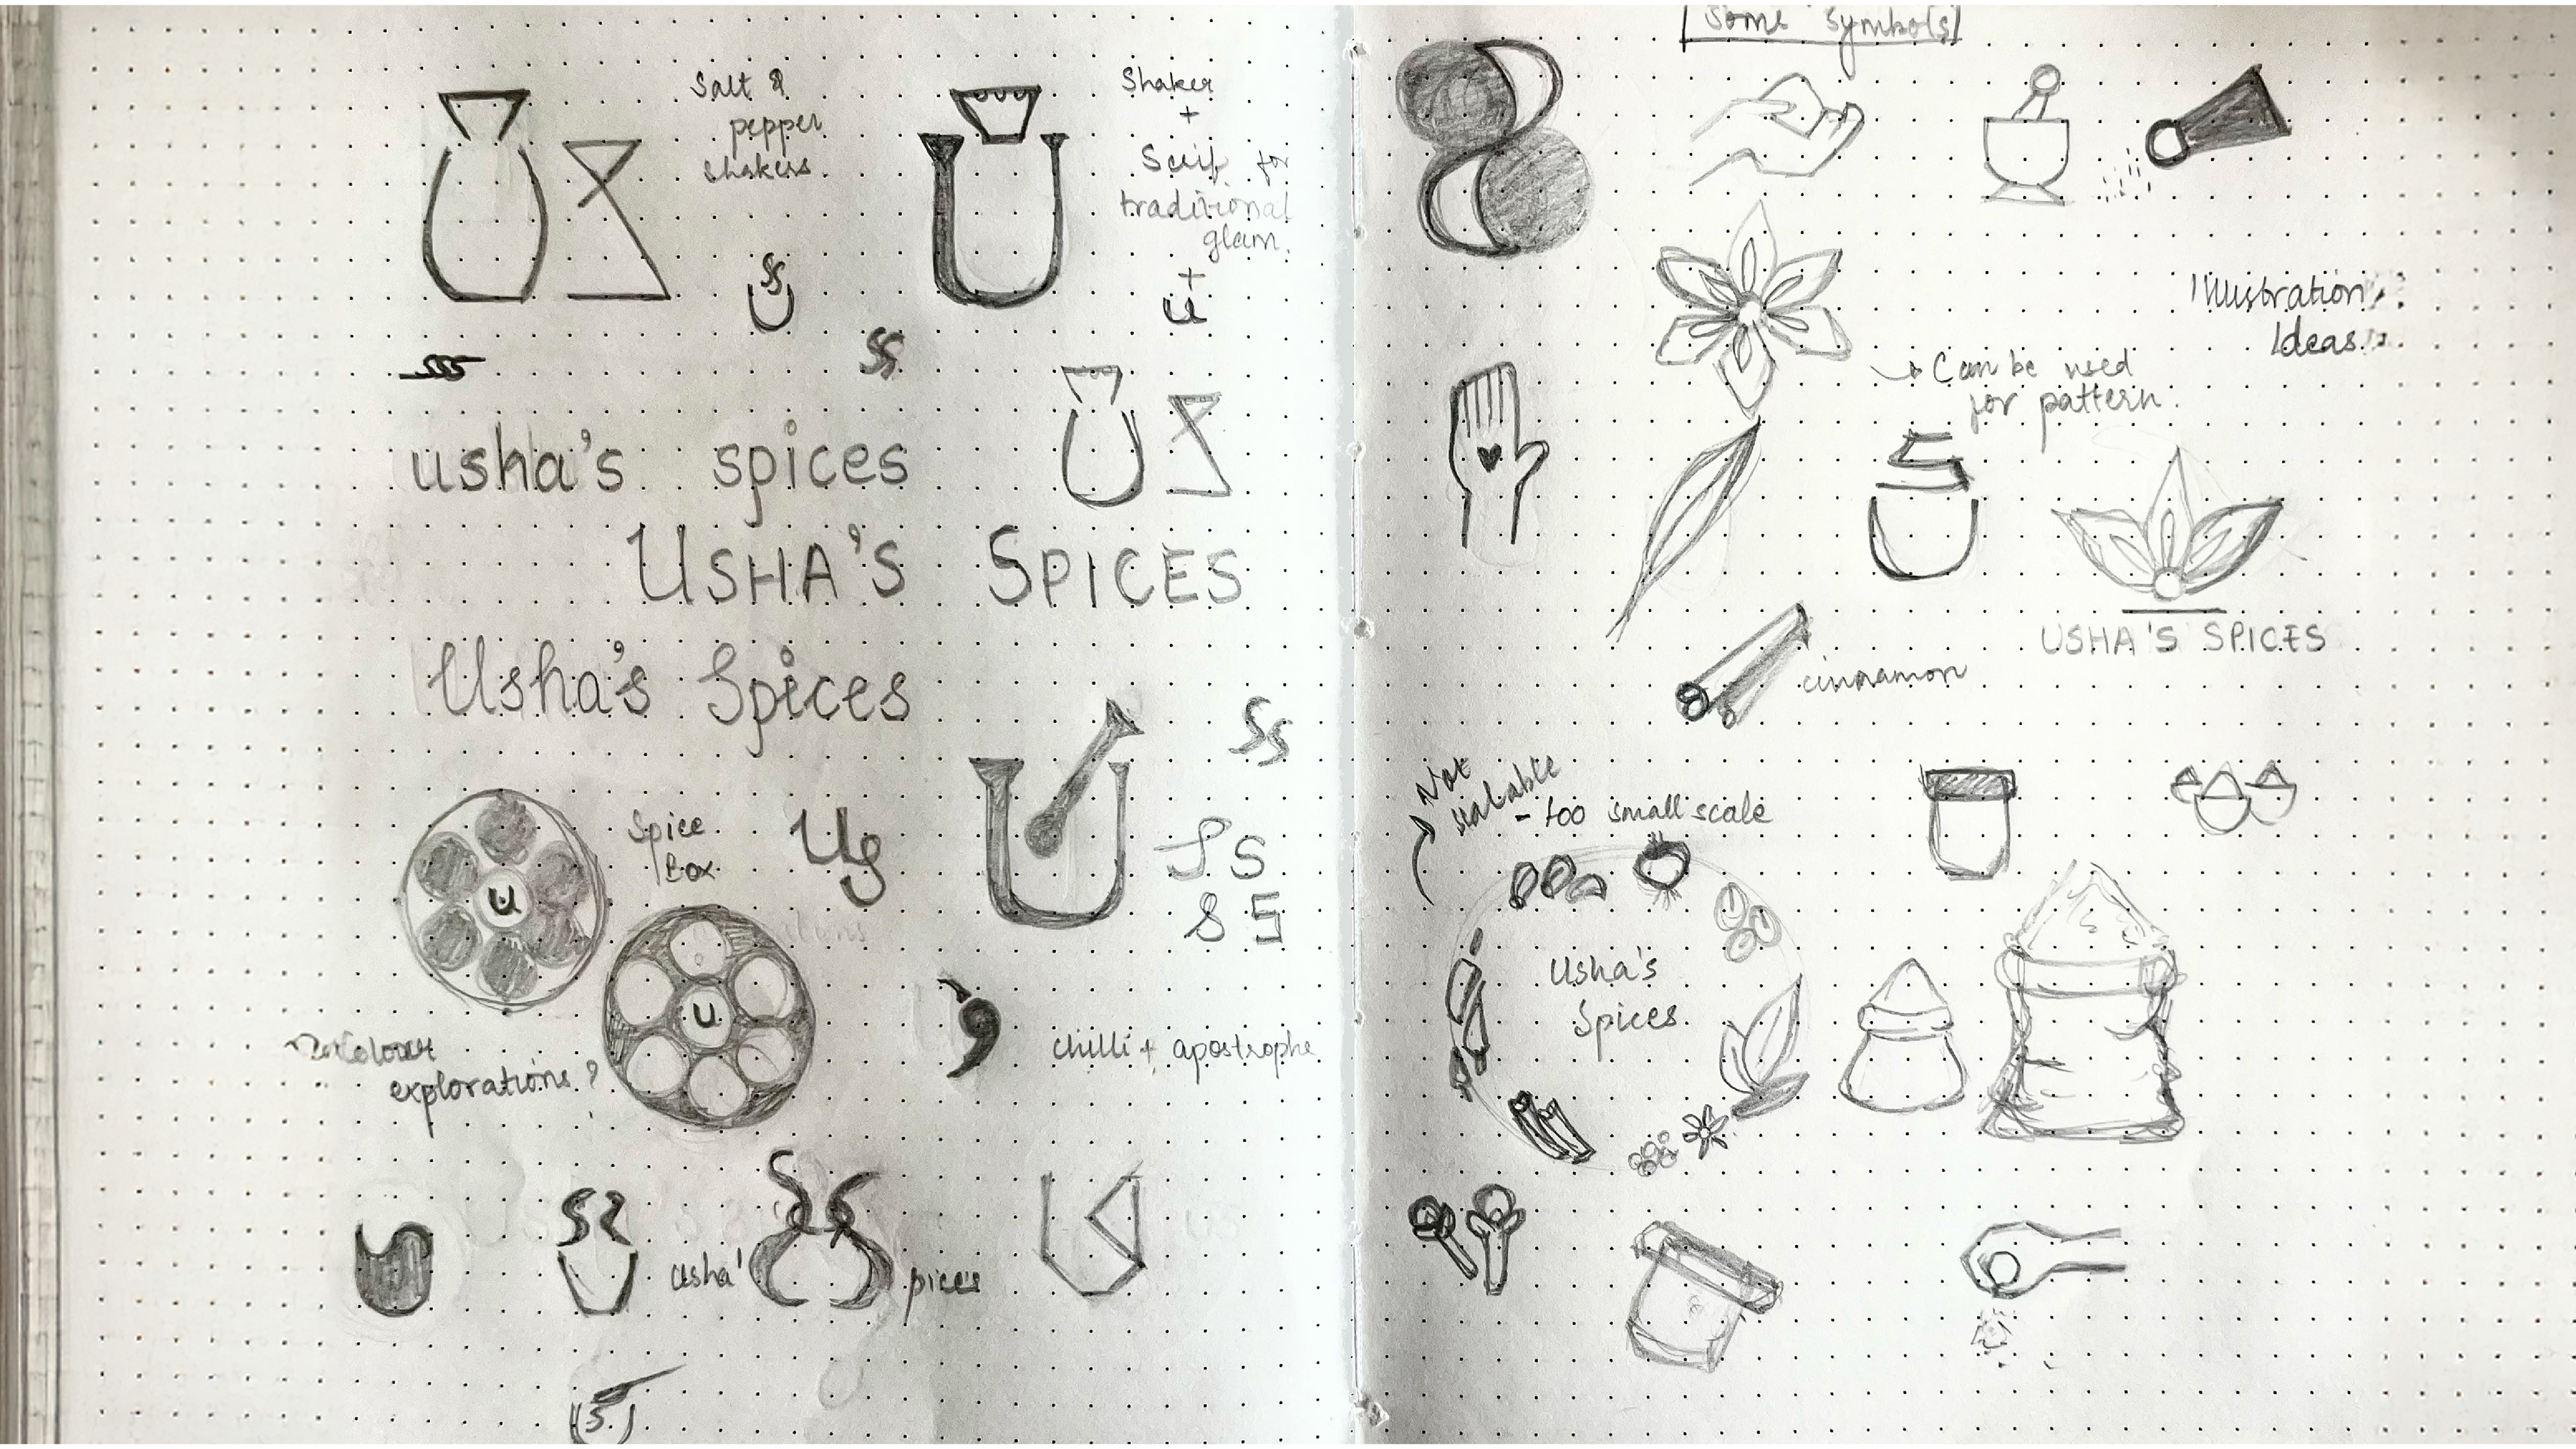 Salt &
pepper
shakers
Shaker
+
Serif for
traditional
glam.
+
u
ss
u
sss
ss
usha's spices
USHA'S SPICES
Usha's Spices
Spice
Box
U
U
Us
Ss
S S
S S
colour
explorations?
chilli + apostrophe
usha'
pices
(S)
Some Symbols
Illustration
Ideas
Can be used
for pattern.
S
USHA'S SPICES
cinnamon
Not
scalable
- too small scale
Usha's
Spices